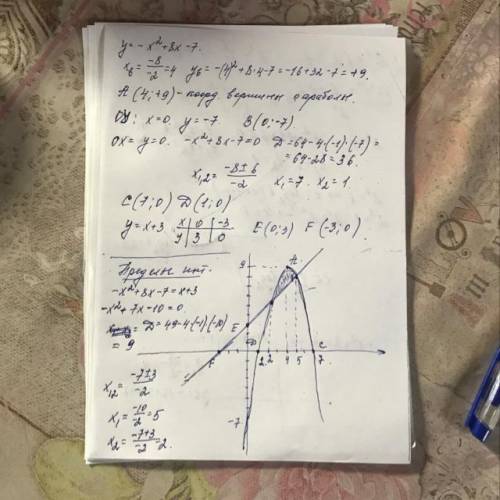 y = -x² + 8x - 7.
x_б = -8/-2 = 4   y_б = -(4)² + 8·4 - 7 = -16 + 32 - 7 = +9.
A (4; +9) - коорд вершины параболы.
OY: x = 0. y = -7. B (0; -7)
OX = y = 0. -x² + 8x - 7 = 0   D = 64 - 4·(-1)·(-7) =
= 64 - 28 = 36.
x₁,₂ = -8 ± 6 / -2   x₁ = 7. x₂ = 1.
C (7; 0) D (1; 0)
y = x + 3   x | 0 | -3   E (0; 3) F (-3; 0)
y | 3 | 0
Пределы инт.
-x² + 8x - 7 = x + 3
-x² + 7x - 10 = 0.
D = 49 - 4·(-1)·(-10)
= 9
x₁₂ = -7 ± 3 / -2
x₁ = -10/-2 = 5
x₂ = -7 + 3 / -2 = 2.
9
A
E
F
D
1 2 4 5 7
C
-7